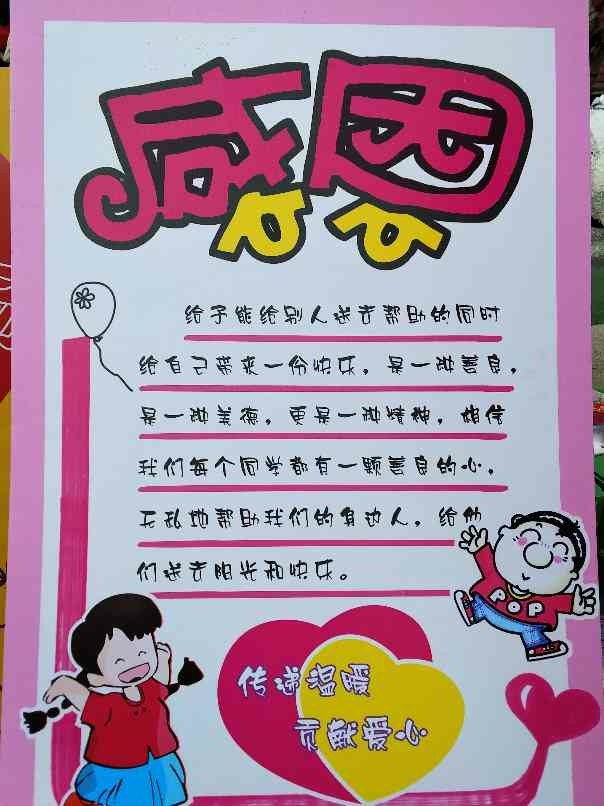 感恩
给予能给别人送去帮助的同时
给自己带来一份快乐，是一种善良，
是一种美德，更是一种精神，相信
我们每个同学都有一颗善良的心，
无私地帮助我们的身边人，给他
们送去阳光和快乐。
POP
传递温暖
贡献爱心